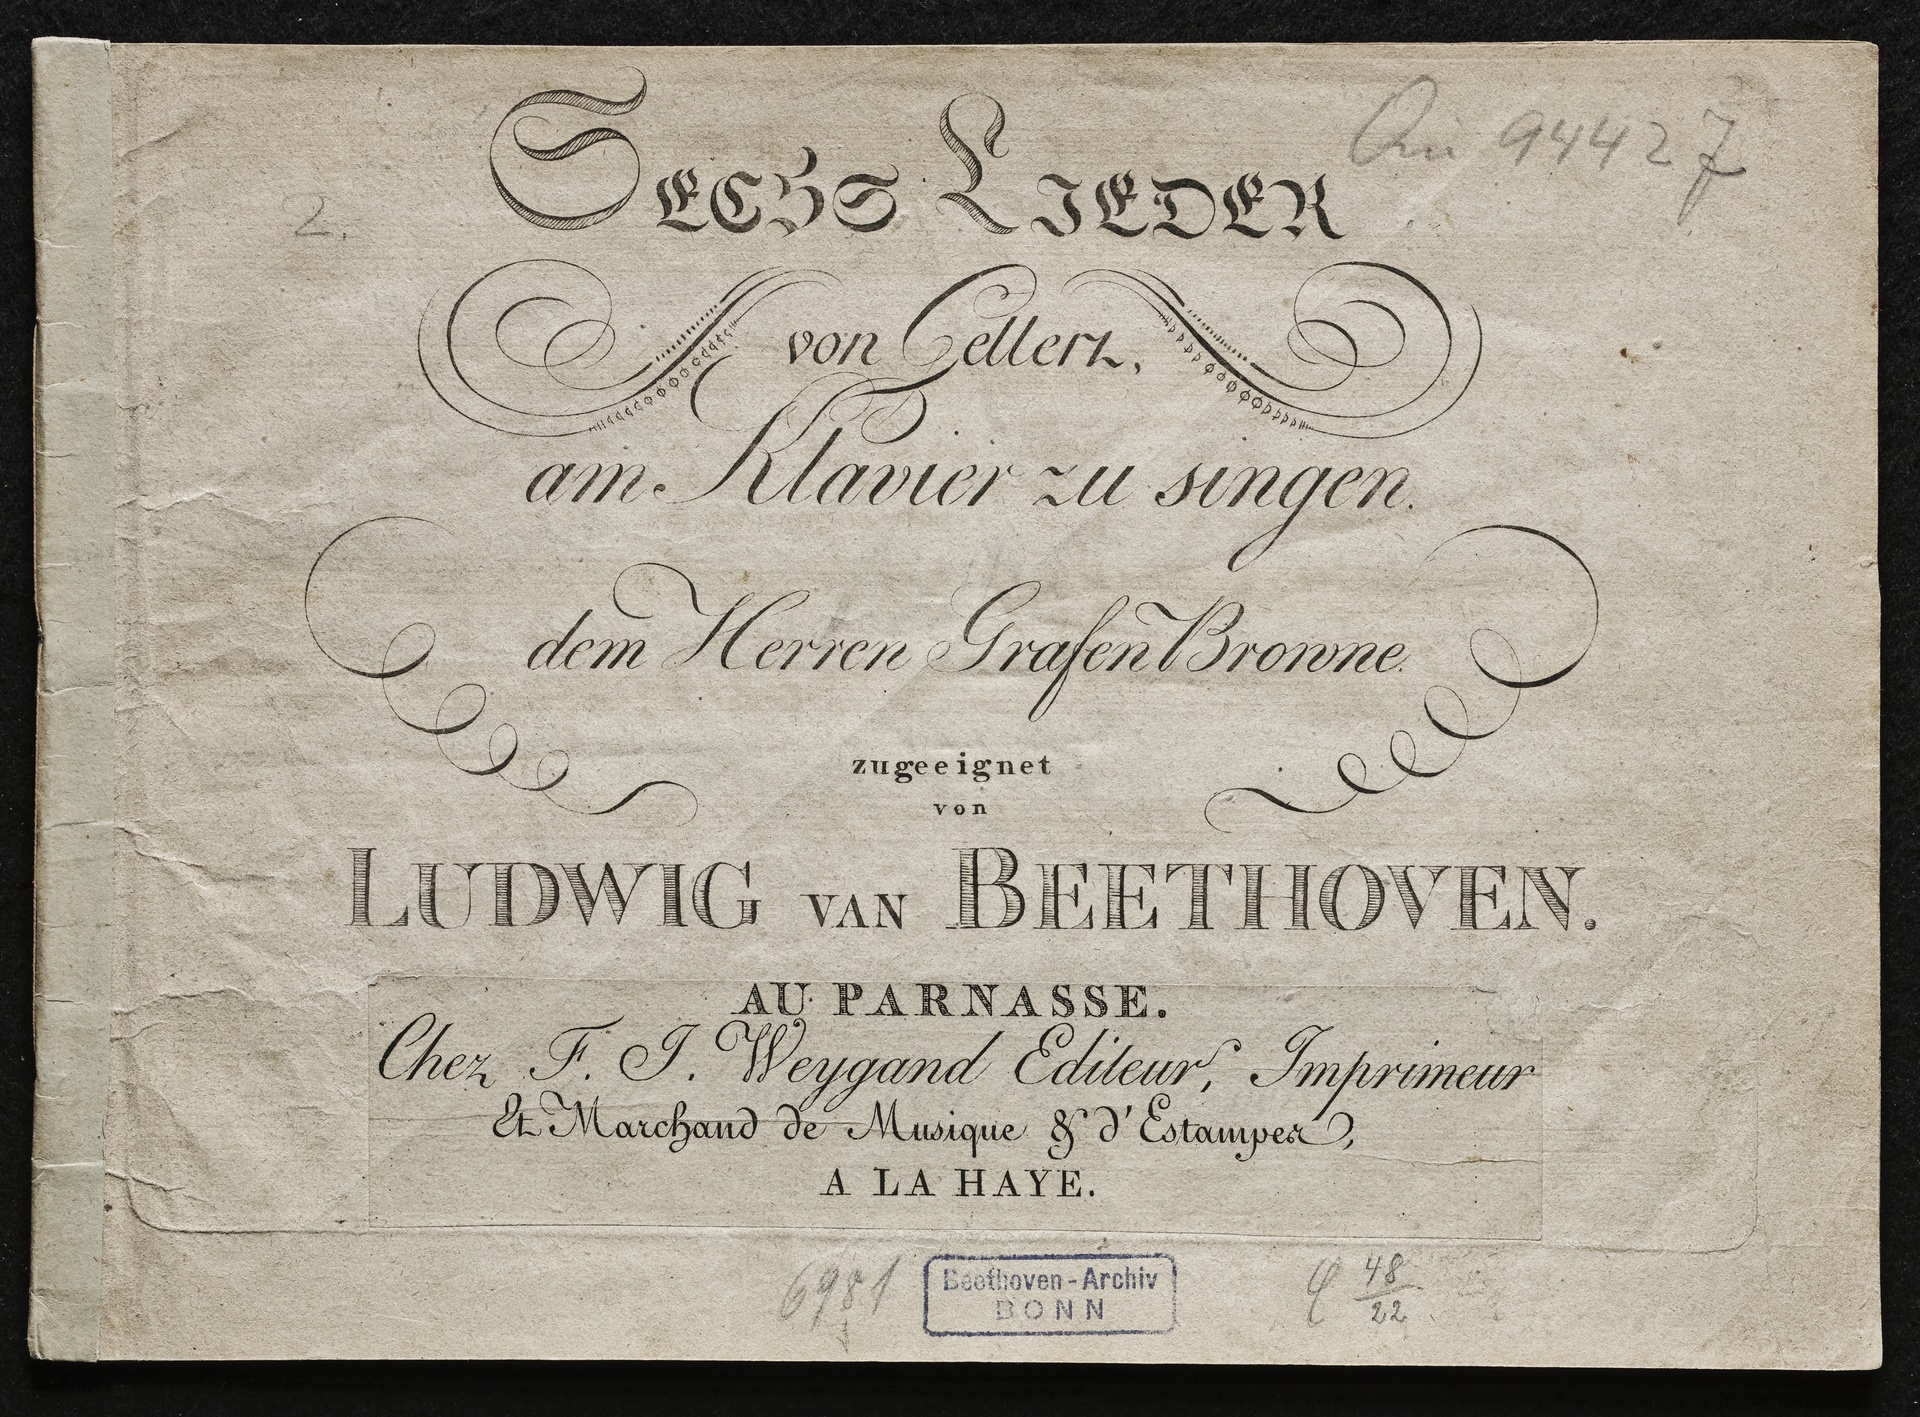 94427
Sechs Lieder
2.
von Gellert,
am Klavier zu singen.
dem Herren Grafen Browne.
zugeeignet
von
LUDWIG VAN BEETHOVEN.
AU PARNASSE.
Chez F. J. Weygand Editeur, Imprimeur
Et Marchand de Musique & d'Estampes,
A LA HAYE.
6981
Beethoven-Archiv
BONN
48
22